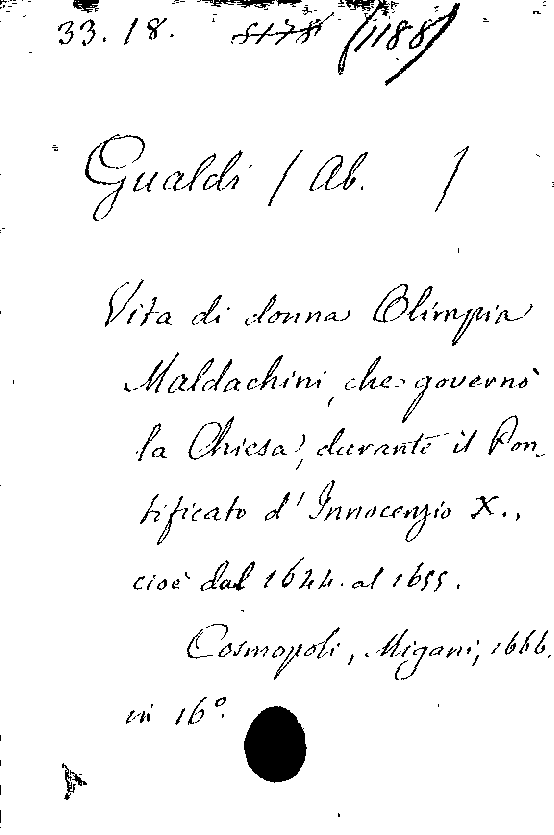 33.18. 8178 (1188)
Gualdi / Ab. /
Vita di donna Olimpia
Maldachini, che governò
la Chiesa, durante il Pon-
tificato d'Innocenzio X.,
cioè dal 1644. al 1655.
Cosmopoli, Migani, 1666.
in 16º.